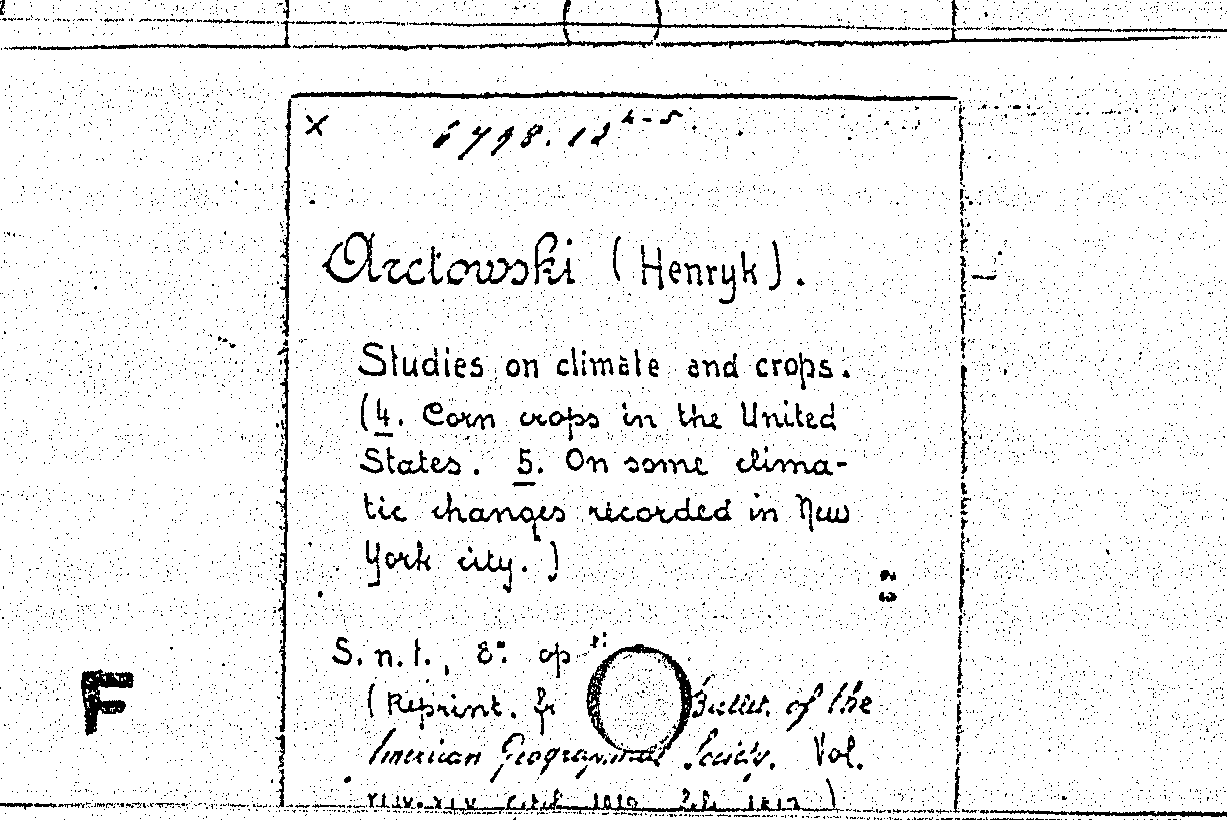 x 6798.12 4-5.
Arctowski (Henryk).
Studies on climate and crops.
(4. Corn crops in the United
States. 5. On some clima-
tic changes recorded in New
York city.)
32
S.n.t., 8°. op
F
(Reprint. fr Bullet. of the
American Geographical Society. Vol.
XLIV-XLV